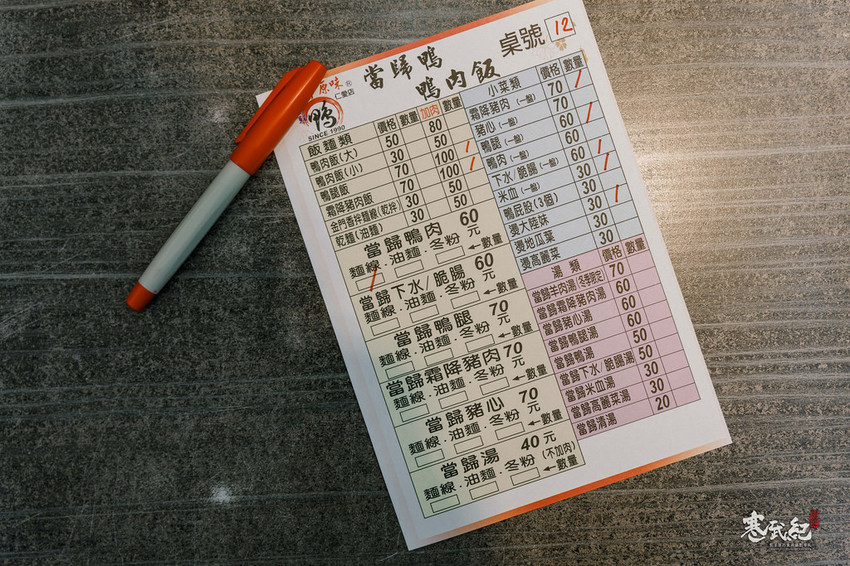 桌號 12
當歸鴨
鴨肉飯
原味®
仁愛店
鴨
SINCE 1990
飯麵類 價格 數量 加肉 數量
鴨肉飯(大) 50 80
鴨肉飯(小) 30 50
鴨腿飯 70 100
霜降豬肉飯 70 100
金門香拌麵線(乾拌) 30 50
乾麵(油麵) 30 50
當歸鴨肉 60元
麵線.油麵.冬粉 ←數量
當歸下水/脆腸 60元
麵線.油麵.冬粉 ←數量
當歸鴨腿 70元
麵線.油麵.冬粉 ←數量
當歸霜降豬肉 70元
麵線.油麵.冬粉 ←數量
當歸豬心 70元
麵線.油麵.冬粉 ←數量
當歸湯 40元
麵線.油麵.冬粉 (不加肉) ←數量
小菜類 價格 數量
霜降豬肉(一盤) 70
豬心(一盤) 70
鴨腿(一盤) 60
鴨肉(一盤) 60
下水/脆腸(一盤) 60
米血(一盤) 30
鴨屁股(3個) 30
燙大陸妹 30
燙地瓜葉 30
燙高麗菜 30
湯類 價格 數量
當歸羊肉湯(冬季限定) 70
當歸霜降豬肉湯 60
當歸豬心湯 60
當歸鴨腿湯 60
當歸鴨湯 50
當歸下水/脆腸湯 50
當歸米血湯 30
當歸高麗菜湯 30
當歸清湯 20
寒武紀